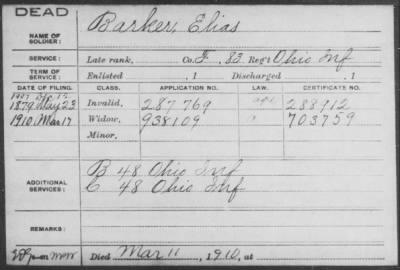 DEAD
NAME OF SOLDIER: Barker, Elias
SERVICE: Late rank, Co. F, 83 Reg't Ohio Inf
TERM OF SERVICE: Enlisted , 1 Discharged , 1
DATE OF FILING. CLASS. APPLICATION NO. LAW. CERTIFICATE NO.
1879 May 23 Invalid, 287 769 288912
1910 Mar 17 Widow, 938109 703759
Minor,
ADDITIONAL SERVICES: B 48 Ohio Inf
C 48 Ohio Inf
REMARKS:
Died Mar 11, 1910, at